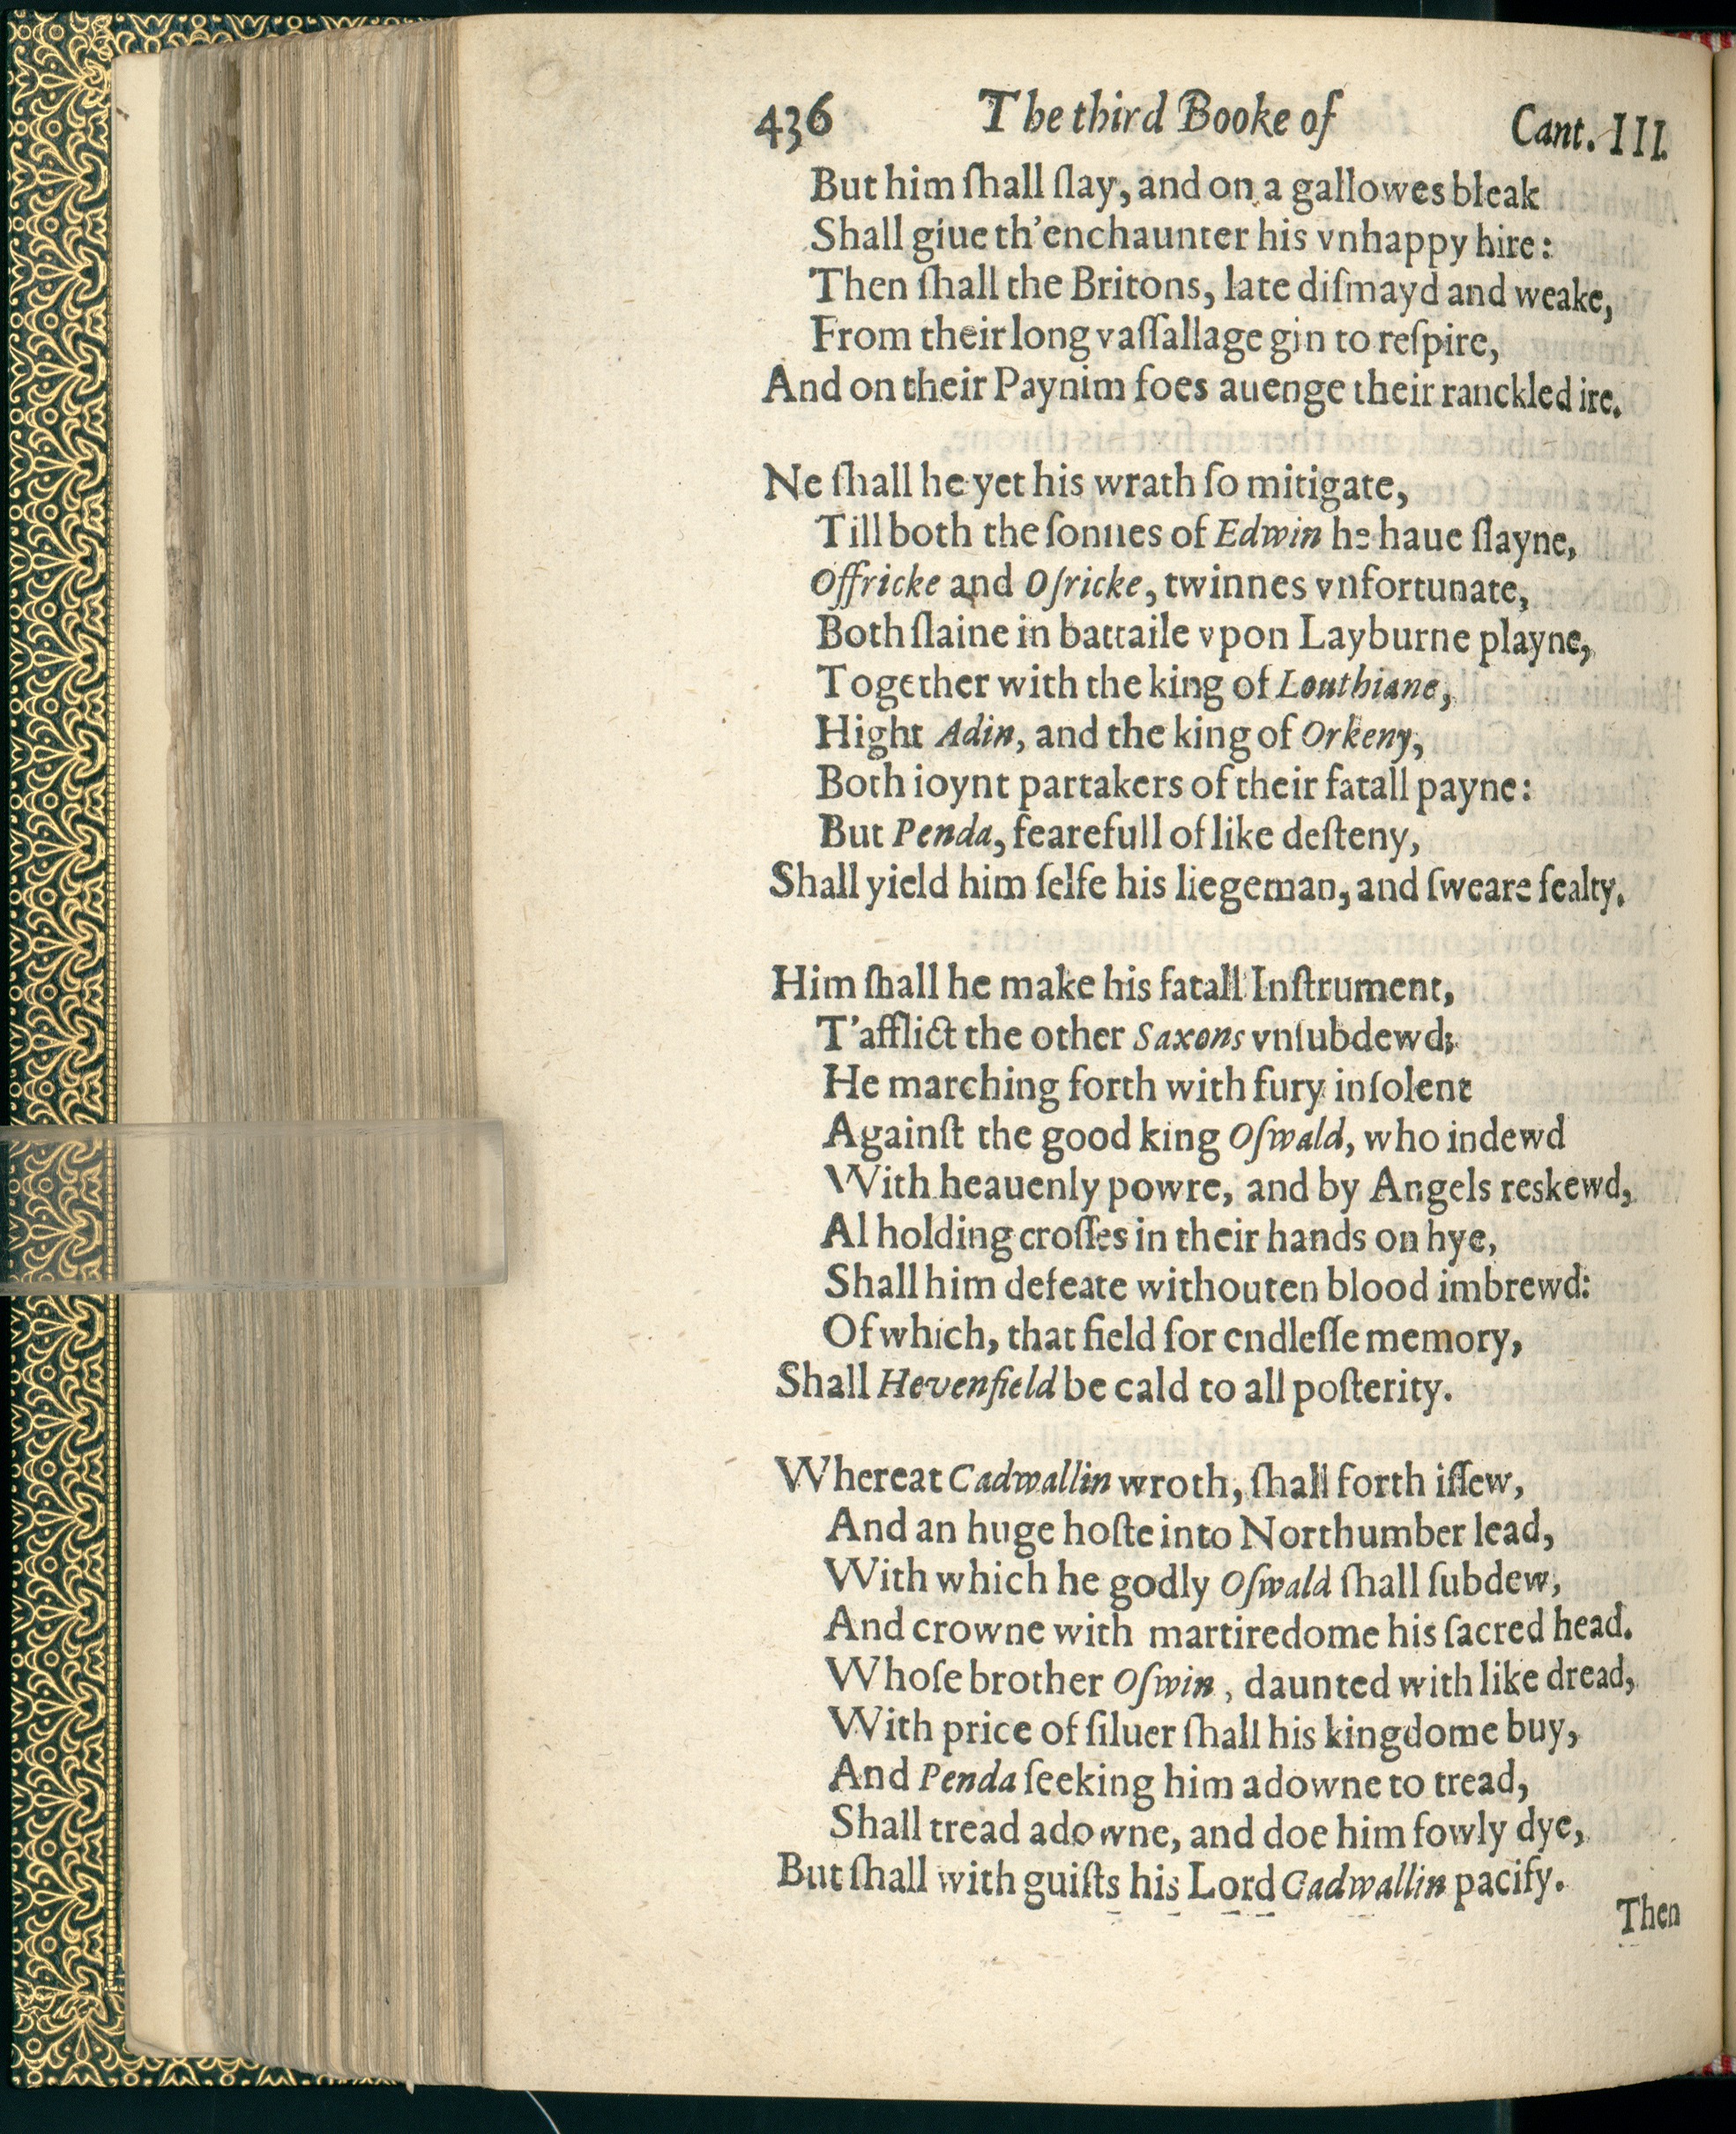 436 The third Booke of Cant. III.
But him ſhall ſlay, and on a gallowes bleak
Shall giue th'enchaunter his vnhappy hire:
Then ſhall the Britons, late diſmayd and weake,
From their long vaſſallage gin to reſpire,
And on their Paynim foes auenge their ranckled ire.
Ne ſhall he yet his wrath ſo mitigate,
Till both the ſonnes of Edwin he haue ſlayne,
Offricke and Oſricke, twinnes vnfortunate,
Both ſlaine in battaile vpon Layburne playne,
Together with the king of Louthiane,
Hight Adin, and the king of Orkeny,
Both ioynt partakers of their fatall payne:
But Penda, fearefull of like deſteny,
Shall yield him ſelfe his liegeman, and ſweare fealty.
Him ſhall he make his fatall Inſtrument,
T'afflict the other Saxons vnſubdewd;
He marching forth with fury inſolent
Againſt the good king Oſwald, who indewd
With heauenly powre, and by Angels reskewd,
Al holding croſſes in their hands on hye,
Shall him defeate withouten blood imbrewd:
Of which, that field for endleſſe memory,
Shall Hevenfield be cald to all poſterity.
Whereat Cadwallin wroth, ſhall forth iſſew,
And an huge hoſte into Northumber lead,
With which he godly Oſwald ſhall ſubdew,
And crowne with martiredome his ſacred head.
Whoſe brother Oſwin, daunted with like dread,
With price of ſiluer ſhall his kingdome buy,
And Penda ſeeking him adowne to tread,
Shall tread adowne, and doe him fowly dye,
But ſhall with guiſts his Lord Cadwallin pacify.
Then